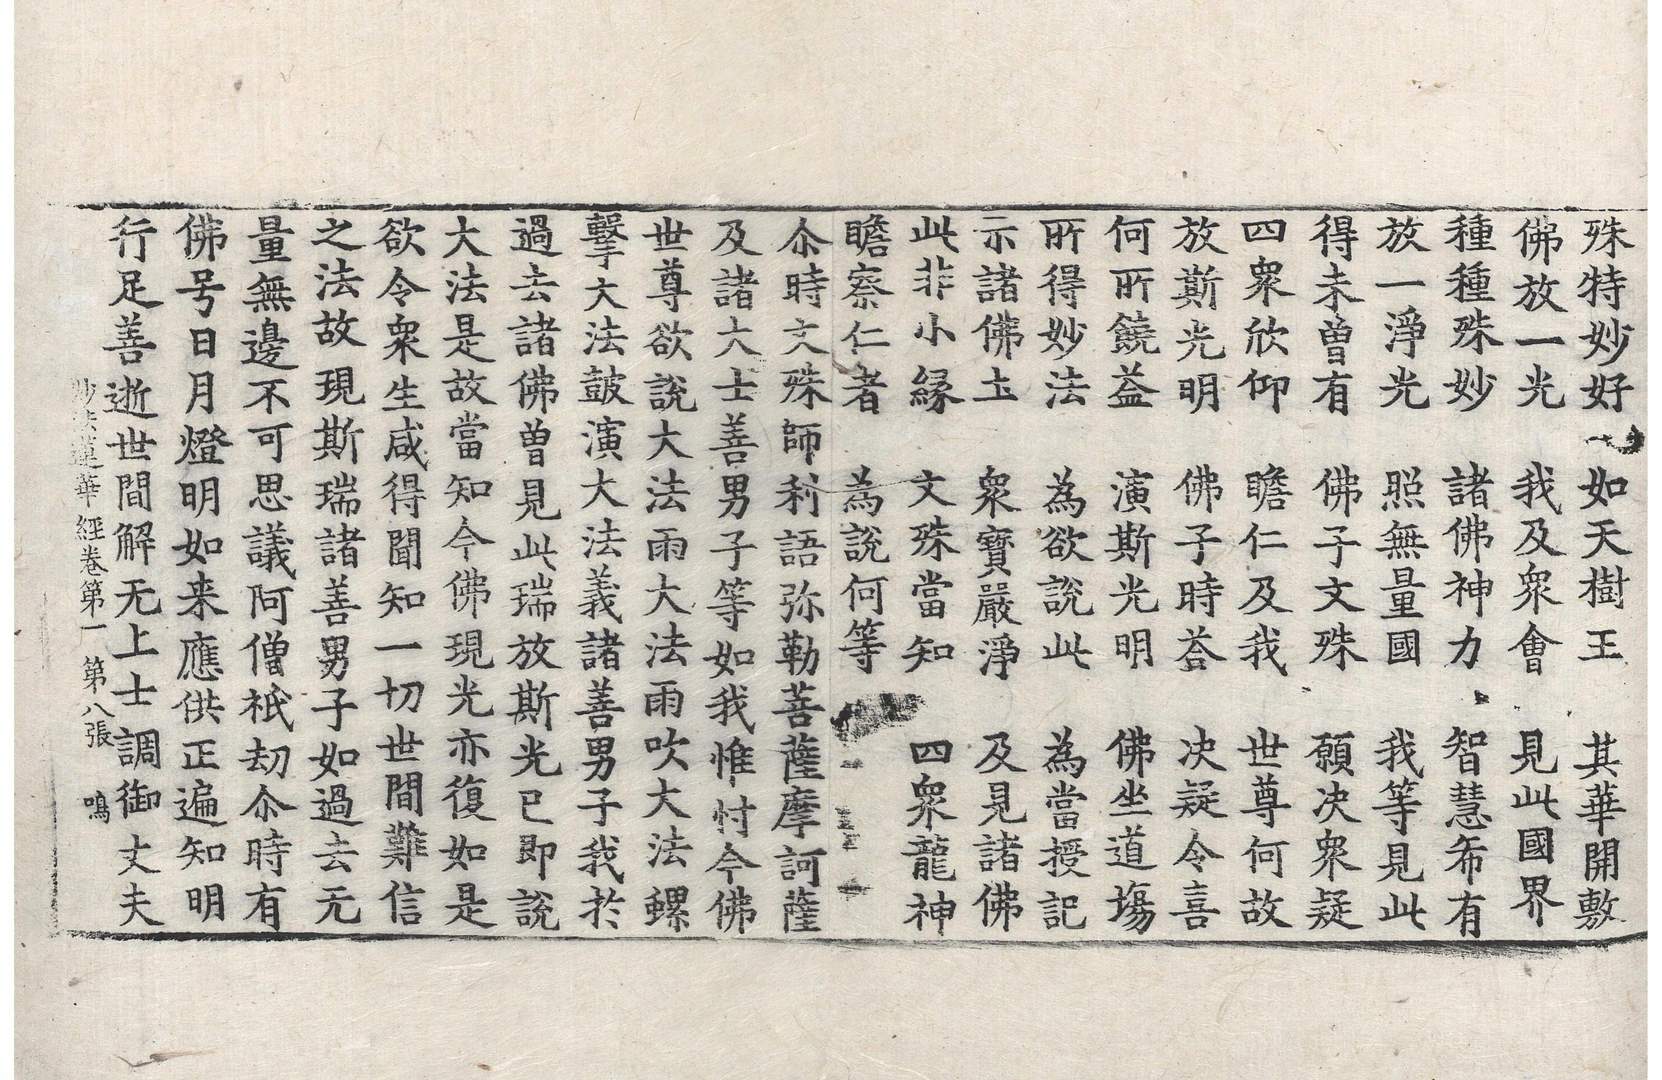 殊特妙好　如天樹王　其華開敷
佛放一光　我及衆會　見此國界
種種殊妙　諸佛神力　智慧希有
放一淨光　照無量國　我等見此
得未曽有　佛子文殊　願决衆疑
四衆欣仰　瞻仁及我　世尊何故
放斯光明　佛子時荅　决疑令喜
何所饒益　演斯光明　佛坐道場
所得妙法　為欲說此　為當授記
示諸佛土　衆寶嚴淨　及見諸佛
此非小緣　文殊當知　四衆龍神
瞻察仁者　為說何等
尒時文殊師利語弥勒菩薩摩訶薩
及諸大士善男子等如我惟忖今佛
世尊欲說大法雨大法雨吹大法螺
擊大法皷演大法義諸善男子我於
過去諸佛曽見此瑞放斯光已即說
大法是故當知今佛現光亦復如是
欲令衆生咸得聞知一切世間難信
之法故現斯瑞諸善男子如過去无
量無邊不可思議阿僧祇劫尒時有
佛号日月燈明如来應供正遍知明
行足善逝世間解无上士調御丈夫
妙法蓮華經卷第一　第八張　鳴